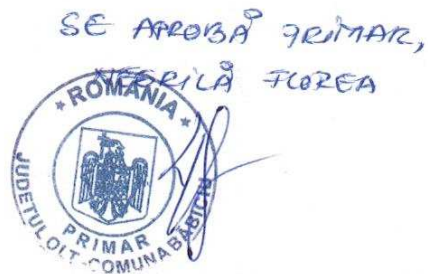 SE APROBĂ PRIMAR,
NEGRILĂ FLOREA
* ROMÂNIA *
JUDEȚUL OLT - COMUNA BĂBICIU
PRIMAR